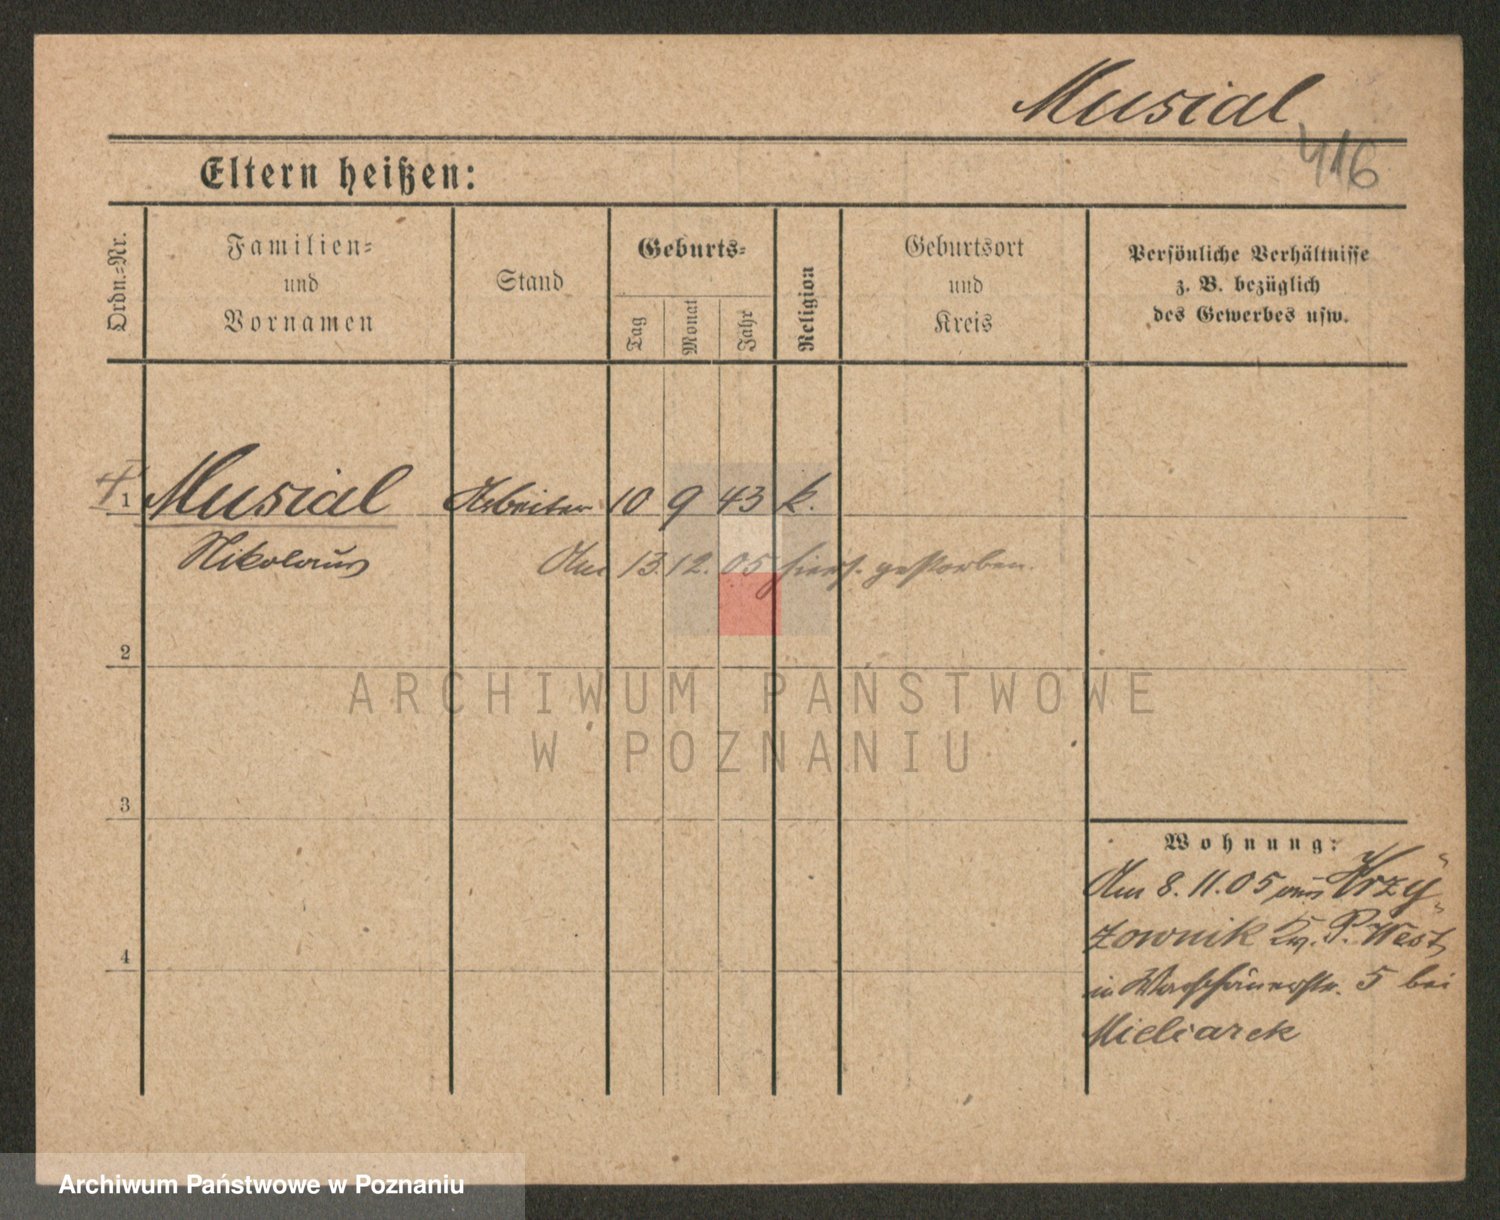 Musial
416
Eltern heißen:
Ordn.-Nr.
Familien-
und
Vornamen
Stand
Geburts-
Tag
Monat
Jahr
Religion
Geburtsort
und
Kreis
Persönliche Verhältnisse
z. B. bezüglich
des Gewerbes usw.
1 Musial Arbeiter 10 9 43 k.
Nikolaus Am 13. 12. 05 hiers. gestorben.
2
ARCHIWUM PAŃSTWOWE
W POZNANIU
3
Wohnung:
Am 8. 11. 05 aus Krzy-
zownik Kr. P. West
4
in Warschauerstr. 5 bei
Mielcarek
Archiwum Państwowe w Poznaniu